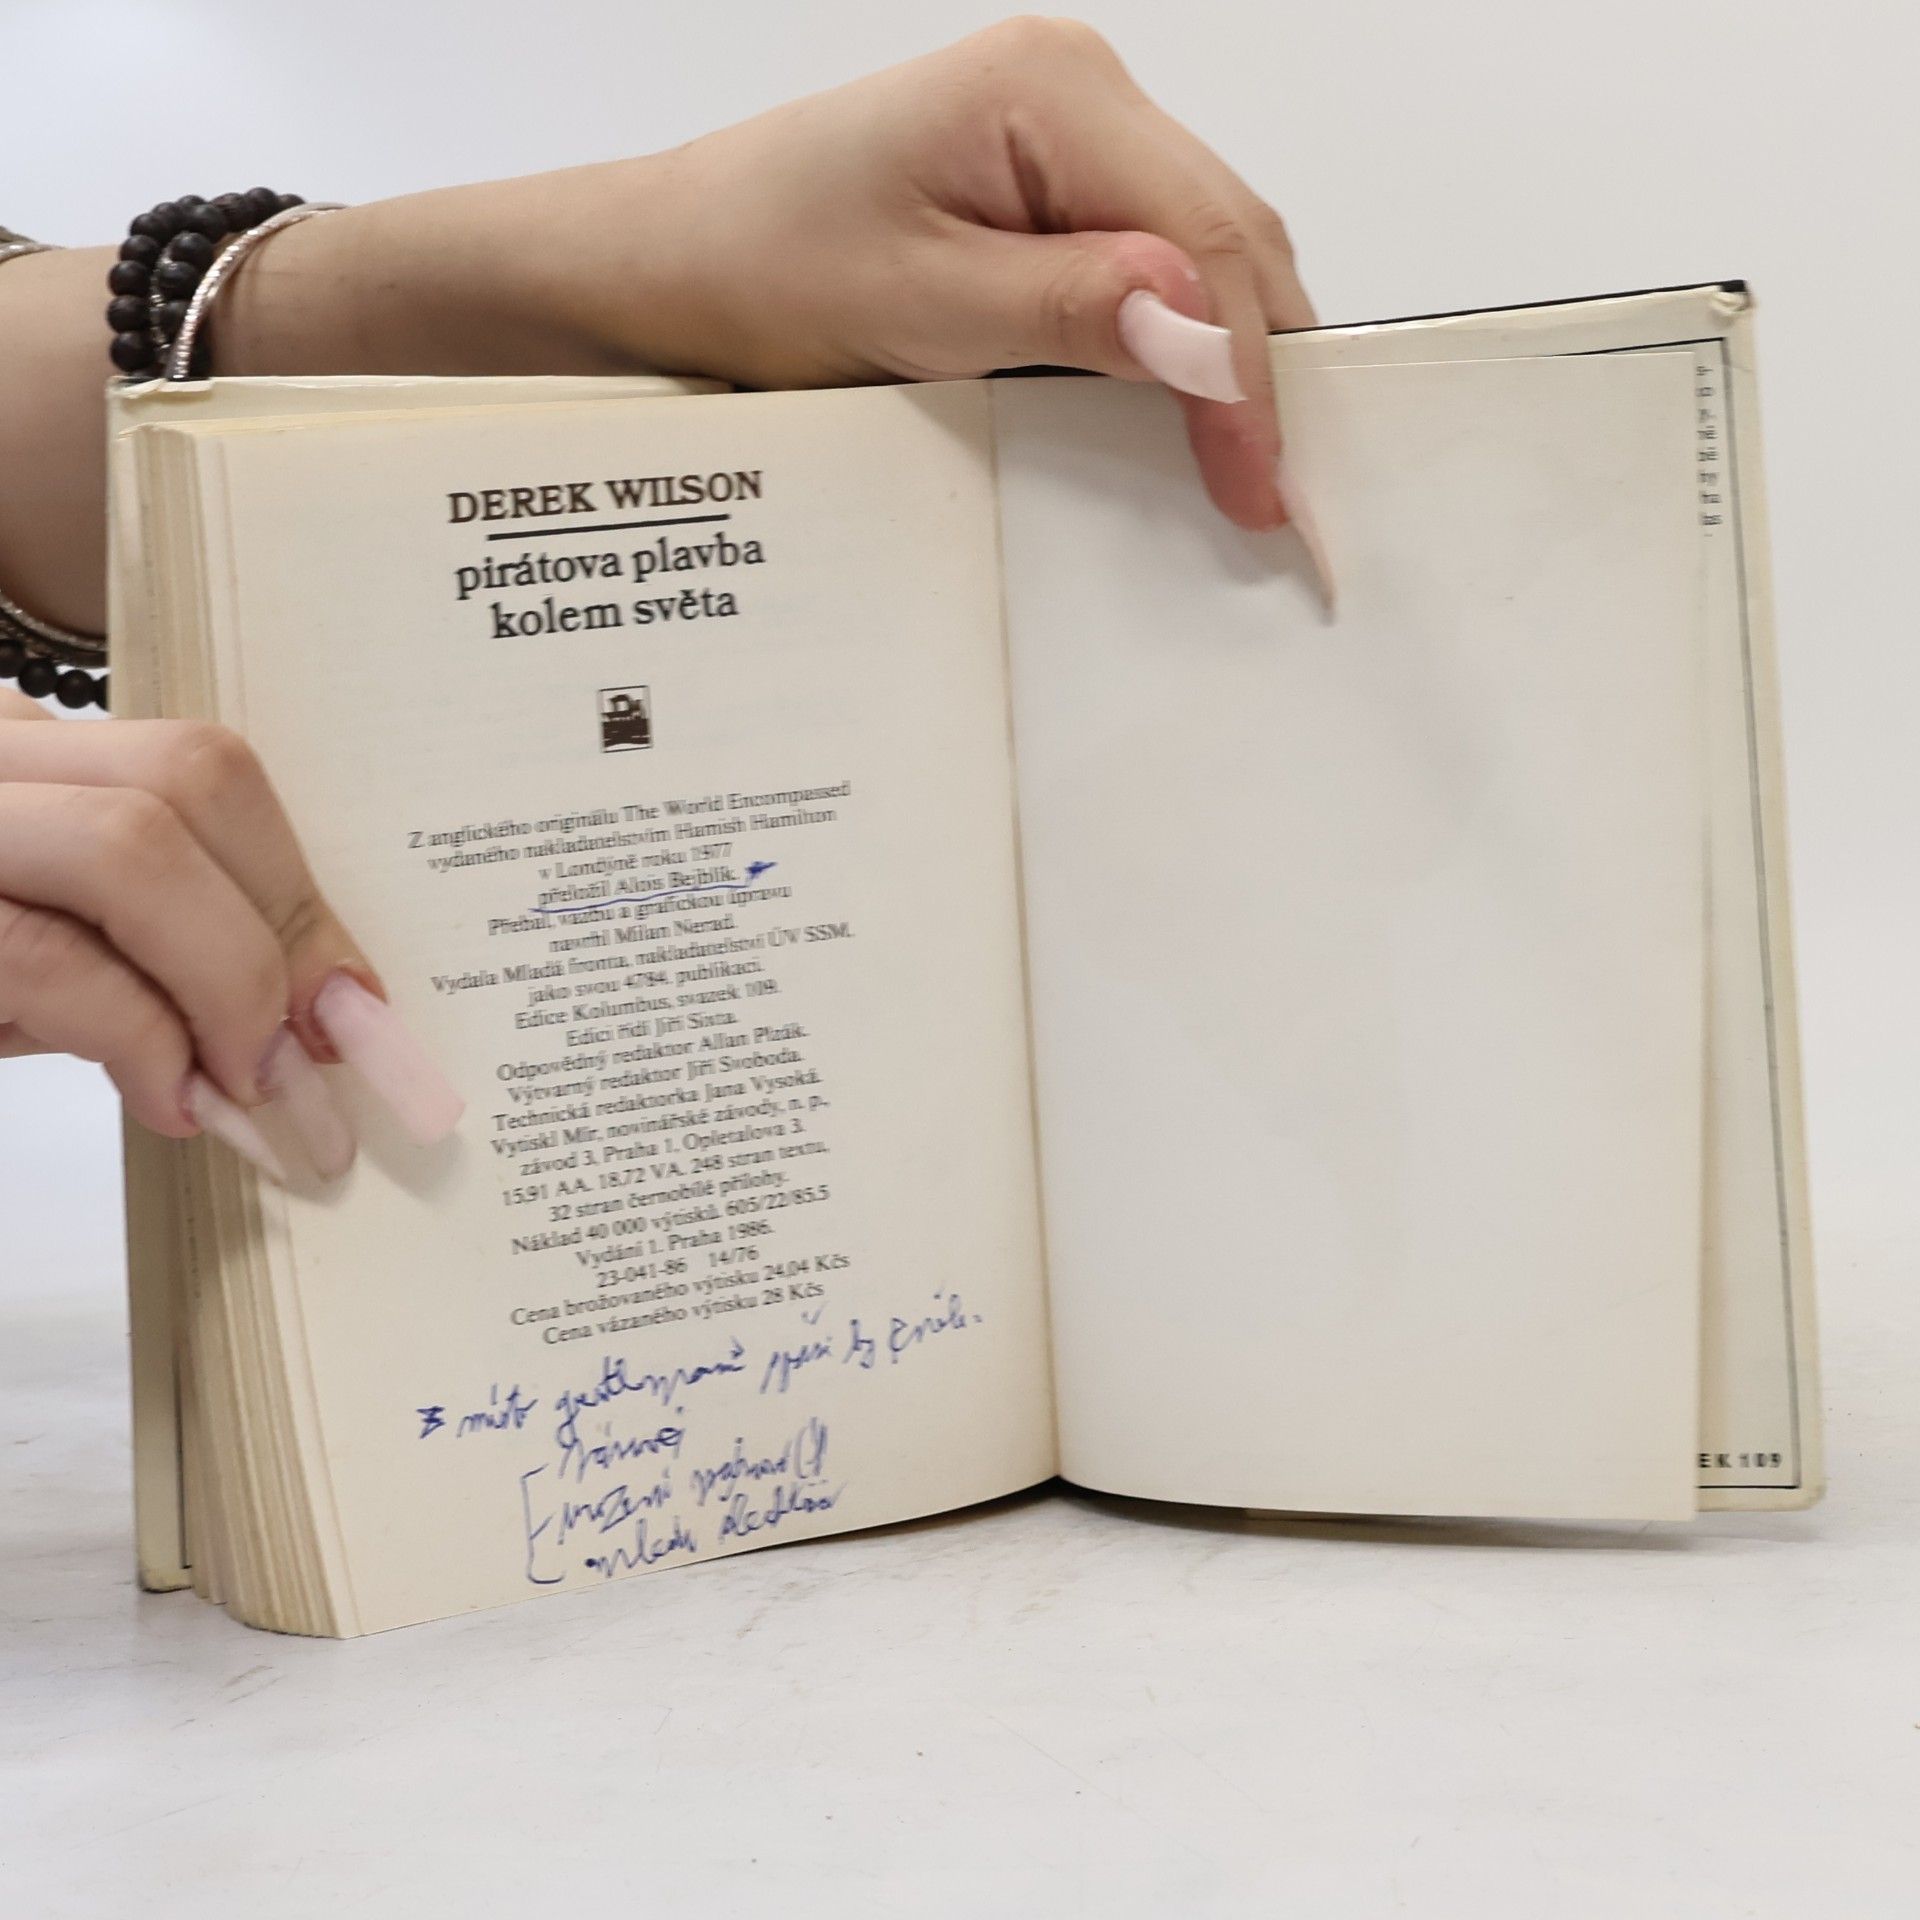 DEREK WILSON
pirátova plavba
kolem světa
Z anglického originálu The World Encompassed
vydaného nakladatelstvím Hamish Hamilton
v Londýně roku 1977
přeložil Alois Bejblík.
Přebal, vazbu a grafickou úpravu
navrhl Milan Nerad.
Vydala Mladá fronta, nakladatelství ÚV SSM,
jako svou 4784. publikaci.
Edice Kolumbus, svazek 109.
Edici řídí Jiří Sixta.
Odpovědný redaktor Allan Plzák.
Výtvarný redaktor Jiří Svoboda.
Technická redaktorka Jana Vysoká.
Vytiskl Mír, novinářské závody, n. p.,
závod 3, Praha 1, Opletalova 3.
15,91 AA. 18,72 VA. 248 stran textu,
32 stran černobílé přílohy.
Náklad 40 000 výtisků. 605/22/85.5
Vydání 1. Praha 1986.
23-041-86 14/76
Cena brožovaného výtisku 24,04 Kčs
Cena vázaného výtisku 28 Kčs
místo
EK 109